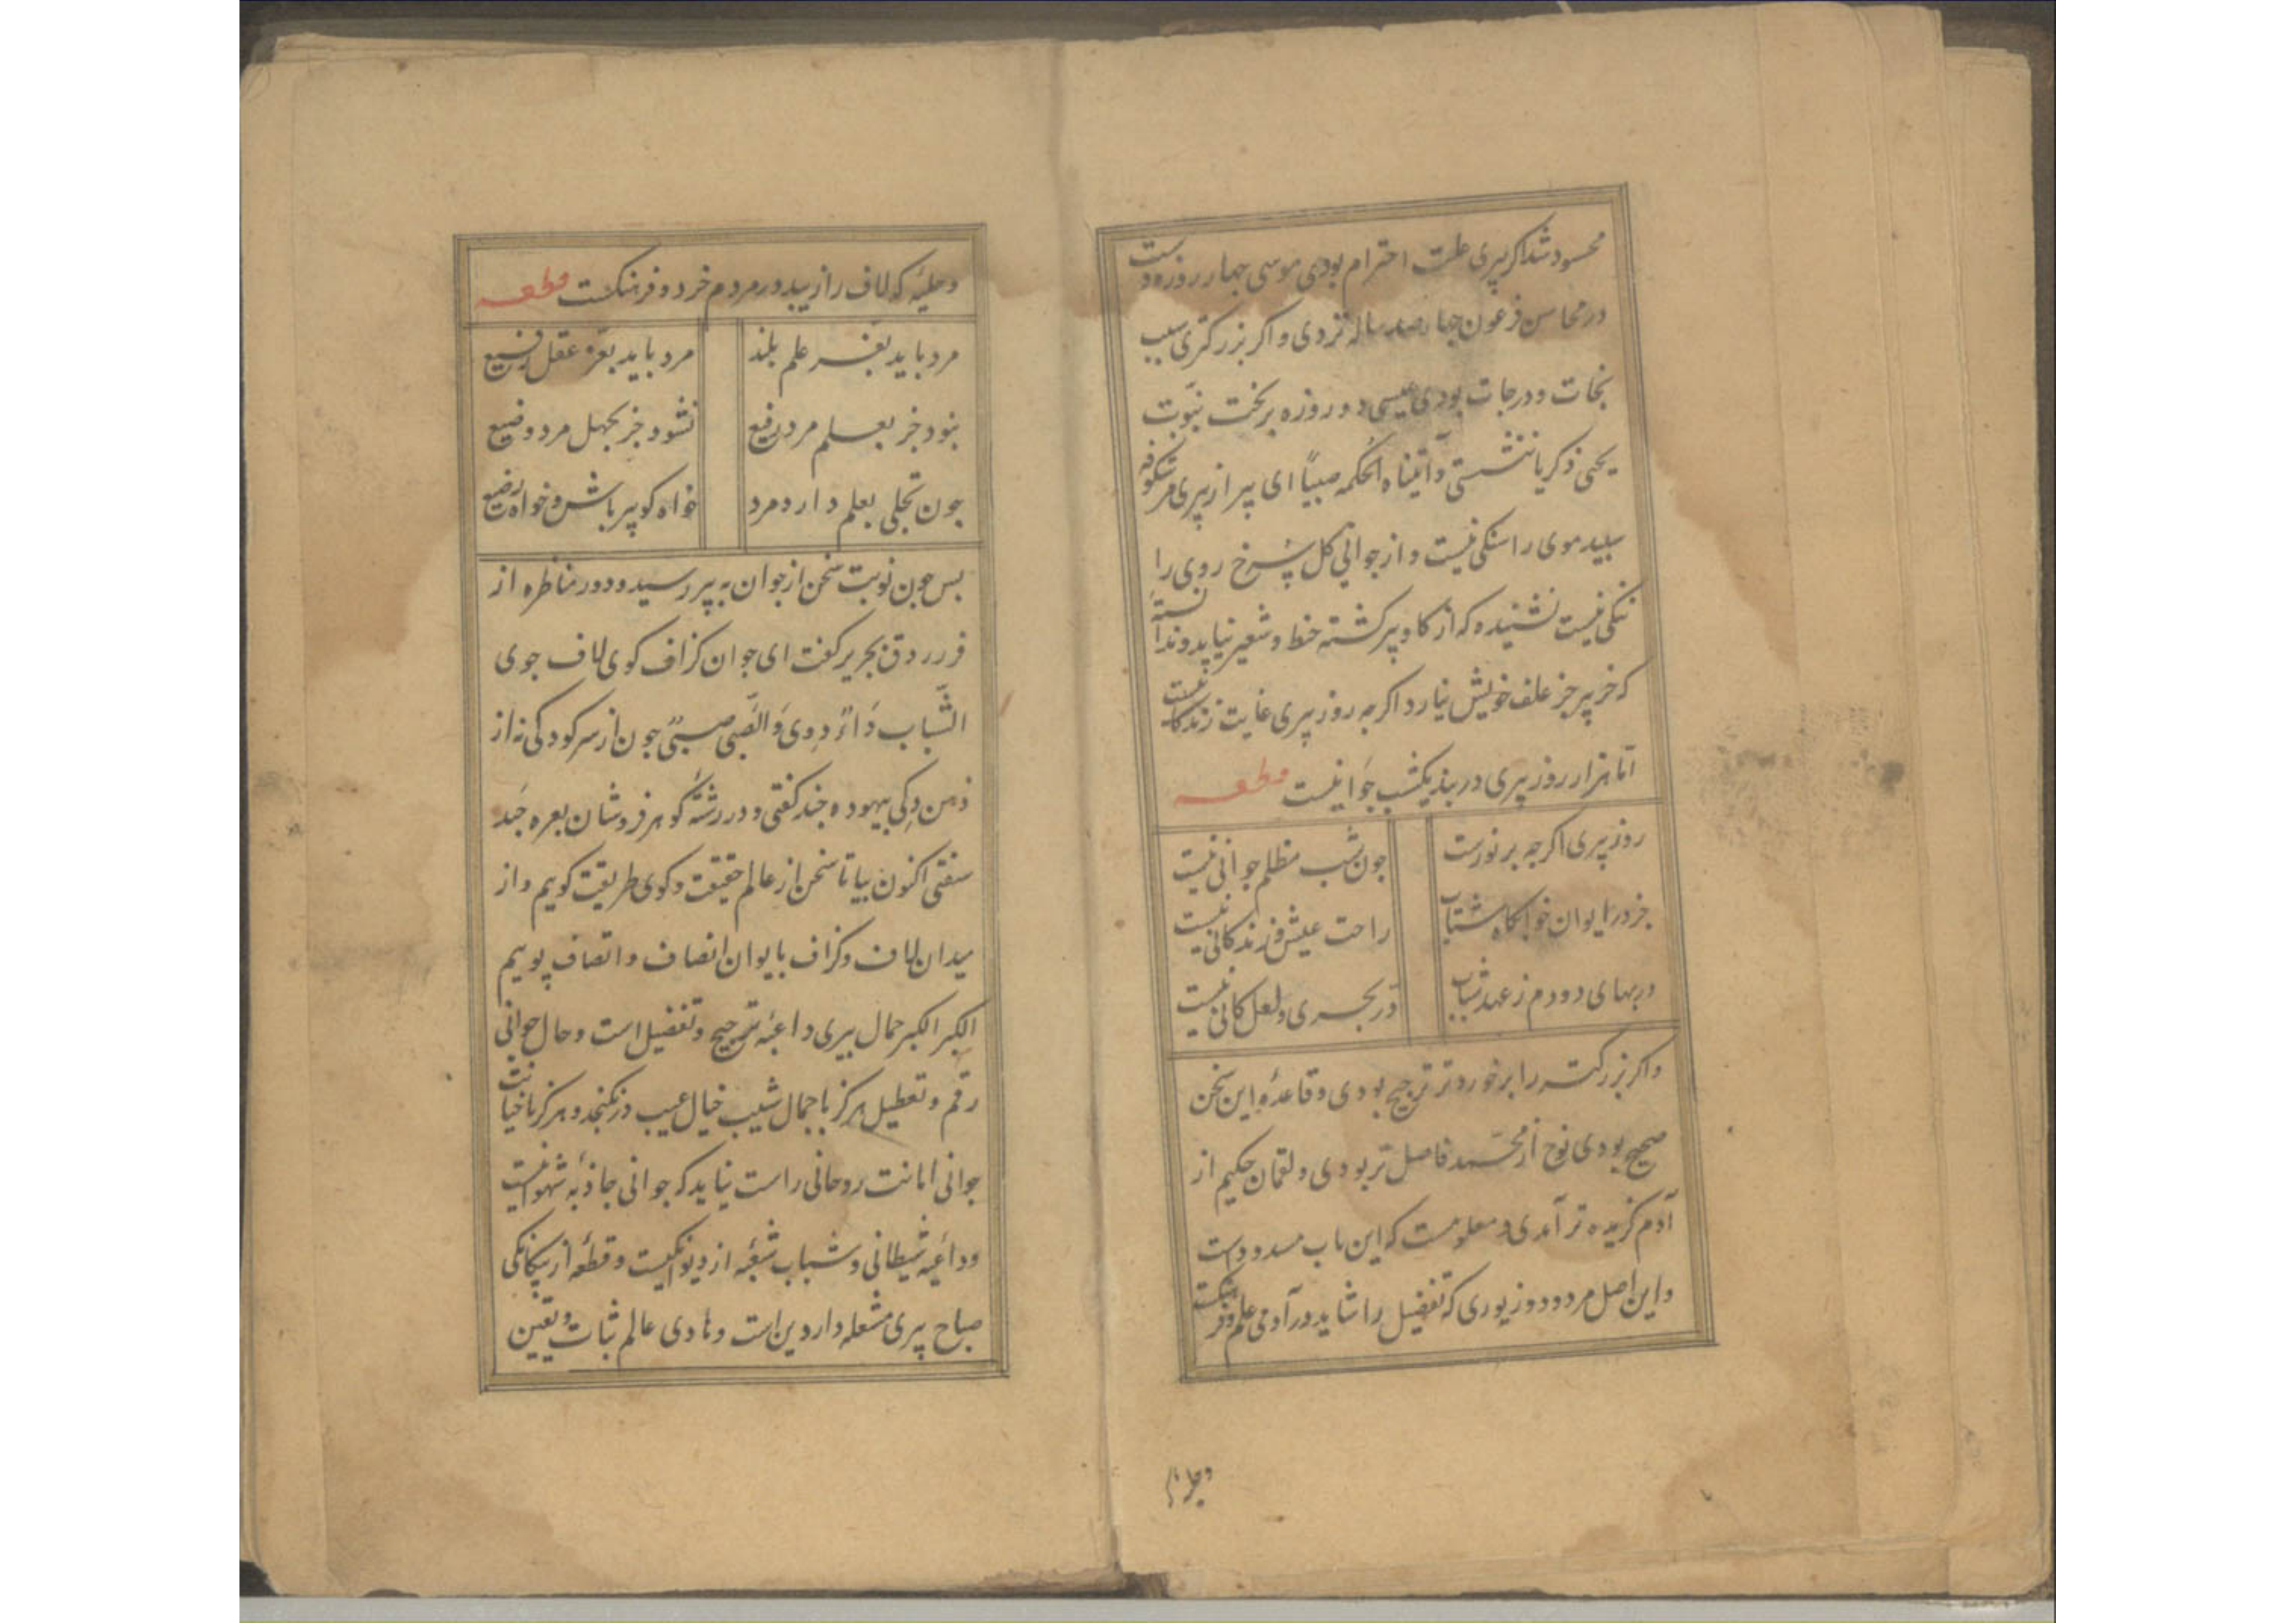 محسود شد اکر پیری علت احترام بودی موسی چهار روزه دست
در محاسن فرعون چهارصد ساله نزدی و اکر بزرکتری سبب
نجات و درجات بودی عیسی دو روزه بر تخت نبوت
یحیی زکریا ننشستی و آتیناه الحکم صبیا ای پیر از پیری مر شکوفه
سپید موی را سنکی نیست و از جوانی کل سرخ روی را
ننکی نیست نشنیده که از کاو پیر کشته حنطه و شعیر نیاید و ندانسته
که خر پیر جز علف خویش نیارد اکرچه روز پیری غایت زندکانیست
اما هزار روز پیری در بند یکشب جوانیست قطعه
روز پیری اکرچه بر نورست
چون شب مظلم جوانی نیست
جز در ایوان خوابکاه شتاب
راحت عیش و زندکانی نیست
در بهای دو دم ز عهد شباب
در بحری و لعل کانی نیست
و اکر بزرکتر را بر خوردتر ترجیح بودی و قاعده این سخن
صحیح بودی نوح از محمد فاضل تر بودی و لقمان حکیم از
آدم کزیده تر آمدی و معلومست که این باب مسدود است
و این اصل مردود و زیوری که تفضیل را شاید در آدمی علم و فرهنکست
و حلیه
و حلیه که لاف را زیبد در مردم خرد و فرهنکست قطعه
مرد باید بفر علم بلند
مرد باید بعز عقل رفیع
نبود جز بعلم مرد رفیع
نشود جز بجهل مرد وضیع
چون تجلی بعلم دارد مرد
خواه کو پیر باش و خواه رضیع
بس چون نوبت سخن از جوان به پیر رسید و دور مناظره از
فرزدق بجریر کفت ای جوان کزاف کوی لاف جوی
الشباب داء دوی و الصبی صبی چون از سر کودکی نه از
ذهن ذکی بیهوده چند کفتی و در رشته کوهر فروشان بعره چند
سفتی اکنون بیا تا سخن از عالم حقیقت و کوی طریقت کویم و از
میدان لاف و کزاف بایوان انصاف و اتصاف پوییم
الکبر الکبر جمال پیری داعیه ترجیح و تفضیل است و حال جوانی
رقم و تعطیل هرکز با جمال شیب خیال عیب در نکنجد و هرکز با خیانت
جوانی امانت روحانی راست نیاید که جوانی جاذبه شهوانیست
و داعیه شیطانی و شباب شعبه از دیوانکیست و قطعه از بیکانکی
صباح پیری مشعله دار دین است و هادی عالم ثبات و یقین